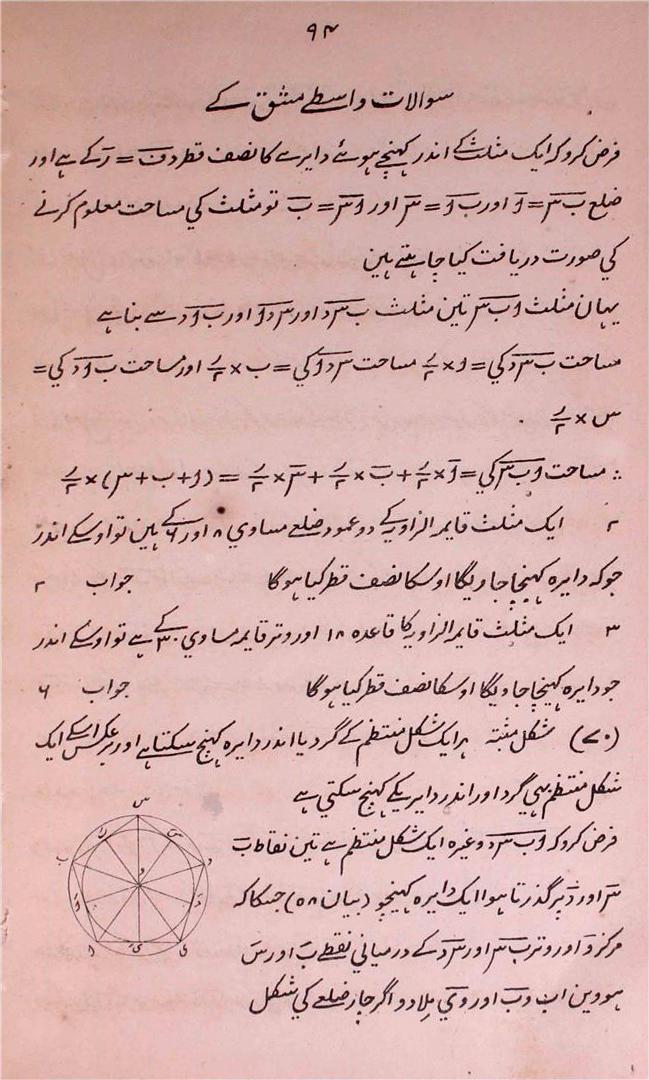 ۹۴
سوالات واسطے مشق کے
فرض کرو کہ ایک مثلث کے اندر کہنچے ہوئے دایرے کا نصف قطر دف = ر کے ہے اور
ضلع ب س = ا اور ب ا = س اور ا س = ب تو مثلث کي مساحت معلوم کرنے
کي صورت دریافت کیا چاہتے ہین
یہان مثلث ا ب س تین مثلث ب س د اور س د ا اور ب ا د سے بنا ہے
مساحت ب س د کي = ا × ر/۲ مساحت س د ا کي = ب × ر/۲ اور مساحت ب ا د کي =
س × ر/۲
∴ مساحت ا ب س کي = ا × ر/۲ + ب × ر/۲ + س × ر/۲ = (ا + ب + س) × ر/۲
۲ ایک مثلث قایم الزاویہ کے دو عمود ضلعے مساوي ۸ اور ۶ کے ہین تو اوسکے اندر
جو کہ دایرہ کہنچا جاویگا اوسکا نصف قطر کیا ہوگا جواب ۲
۳ ایک مثلث قایم الزاویہ کا قاعدہ ۱۸ اور وتر قایمہ مساوي ۳۰ کے ہے تو اوسکے اندر
جو دایرہ کہنچا جاویگا اوسکا نصف قطر کیا ہوگا جواب ۶
(۷۰) شکل مثبتہ ہر ایک شکل منتظم کے گرد یا اندر دایرہ کہنچ سکتا ہے اور برعکس اسکے ایک
شکل منتظم بہي گرد اور اندر دایریکے کہنچ سکتي ہے
فرض کرو کہ ا ب س د وغیرہ ایک شکل منتظم ہے تین نقاط ب
س اور د پر گذرتا ہوا ایک دایرہ کہینچو (بیان ۵۸) جسکا کہ
مرکز و اور وتر ب س اور س د کے درمیاني نقطے ب اور س
ہووین اب و ب اور و ي ملا دو اگر چار ضلعے کي شکل